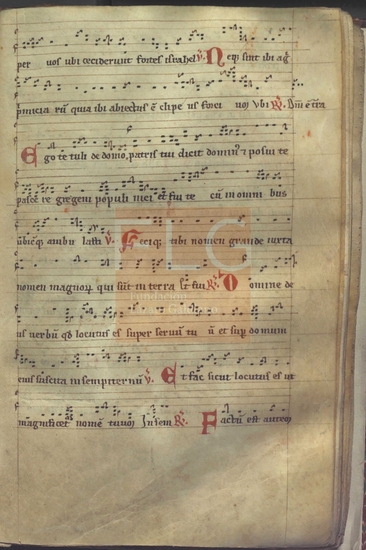 per vos ubi ceciderunt fortes israhel V. Neq; sint ibi ag
primicia rū quia ibi abiectus ē clipeus forci vos Vbi R. Dīn ē tīra
Ego te tuli de domo patris tui dicit dominus & posui te
pascere gregem populi mei et fui te cū in omni bus
ubicūq; ambulasti V. Feciq; tibi nomen grande iuxta
nomen magnoꝝ qui sūt in terra Et fui R. Domine de
us verbū qd locutus es super seruū tu ū et sup domum
eius suscita in sempiternū V. Et fac sicut locutus es ut
magnificet nomē tuum In sem R. Factū est autem